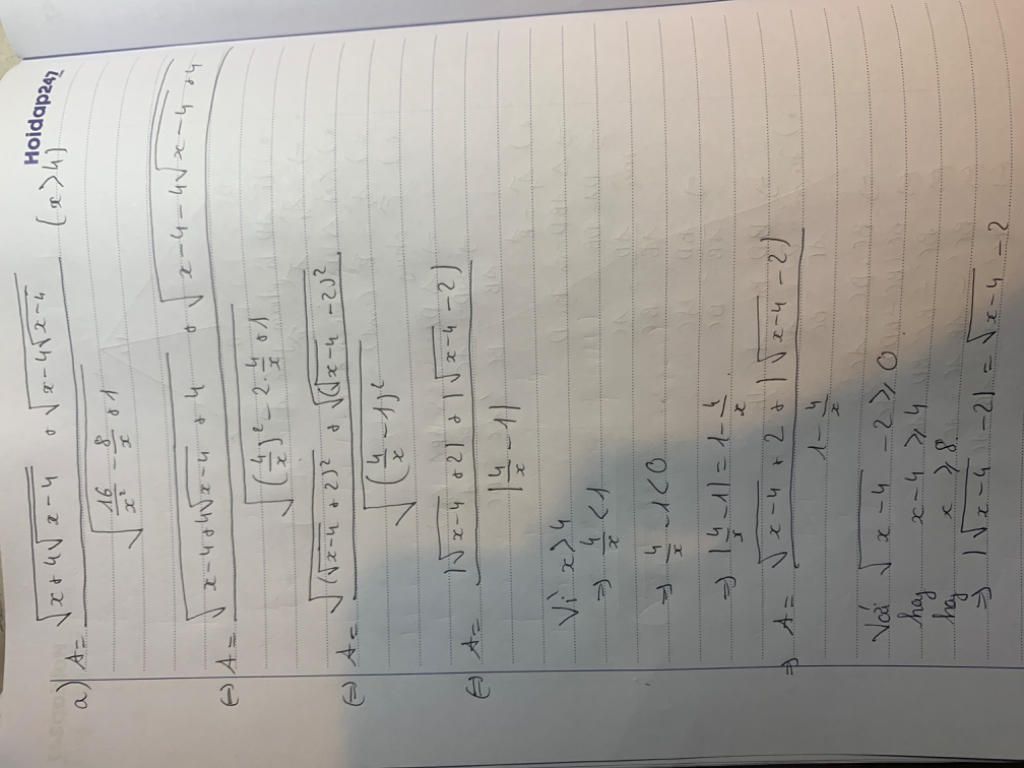 Hoidap247
a) A = \frac{\sqrt{x+4\sqrt{x-4}} + \sqrt{x-4\sqrt{x-4}}}{\sqrt{\frac{16}{x^2} - \frac{8}{x} + 1}} (x > 4)
(=) A = \frac{\sqrt{x-4+4\sqrt{x-4}+4} + \sqrt{x-4-4\sqrt{x-4}+4}}{\sqrt{(\frac{4}{x})^2 - 2.\frac{4}{x} + 1}}
(=) A = \frac{\sqrt{(\sqrt{x-4}+2)^2} + \sqrt{(\sqrt{x-4}-2)^2}}{\sqrt{(\frac{4}{x}-1)^2}}
(=) A = \frac{|\sqrt{x-4}+2| + |\sqrt{x-4}-2|}{|\frac{4}{x}-1|}
Vì x > 4
⇒ \frac{4}{x} < 1
⇒ \frac{4}{x} - 1 < 0
⇒ |\frac{4}{x} - 1| = 1 - \frac{4}{x}
⇒ A = \frac{\sqrt{x-4}+2 + |\sqrt{x-4}-2|}{1-\frac{4}{x}}
Với \sqrt{x-4} - 2 ≥ 0
hay x - 4 ≥ 4
hay x ≥ 8
⇒ |\sqrt{x-4} - 2| = \sqrt{x-4} - 2